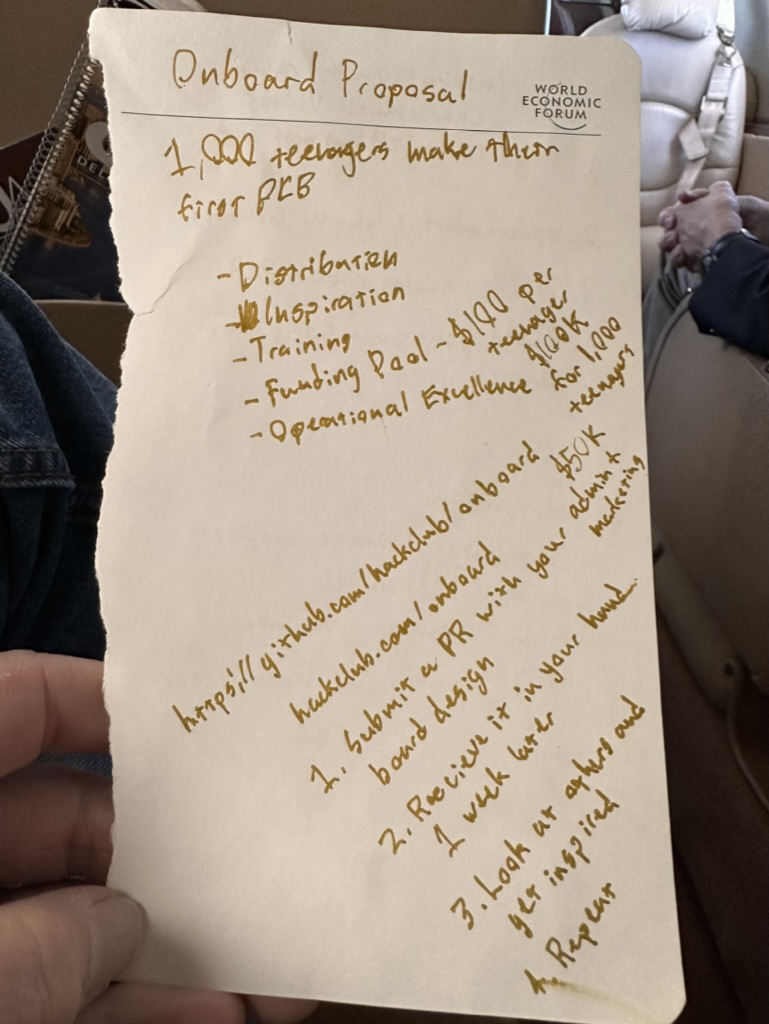 Onboard Proposal
WORLD
ECONOMIC
FORUM
1,000 teenagers make their
first PCB
- Distribution
- Inspiration
- Training
- Funding Pool - $100 per
teenager
$100K
for 1,000
teenagers
- Operational Excellence
$50K
admin +
marketing
https://github.com/hackclub/onboard
hackclub.com/onboard
1. Submit a PR with your
board design
2. Recieve it in your hand
1 week later
3. Look at others and
get inspired
4. Repeat